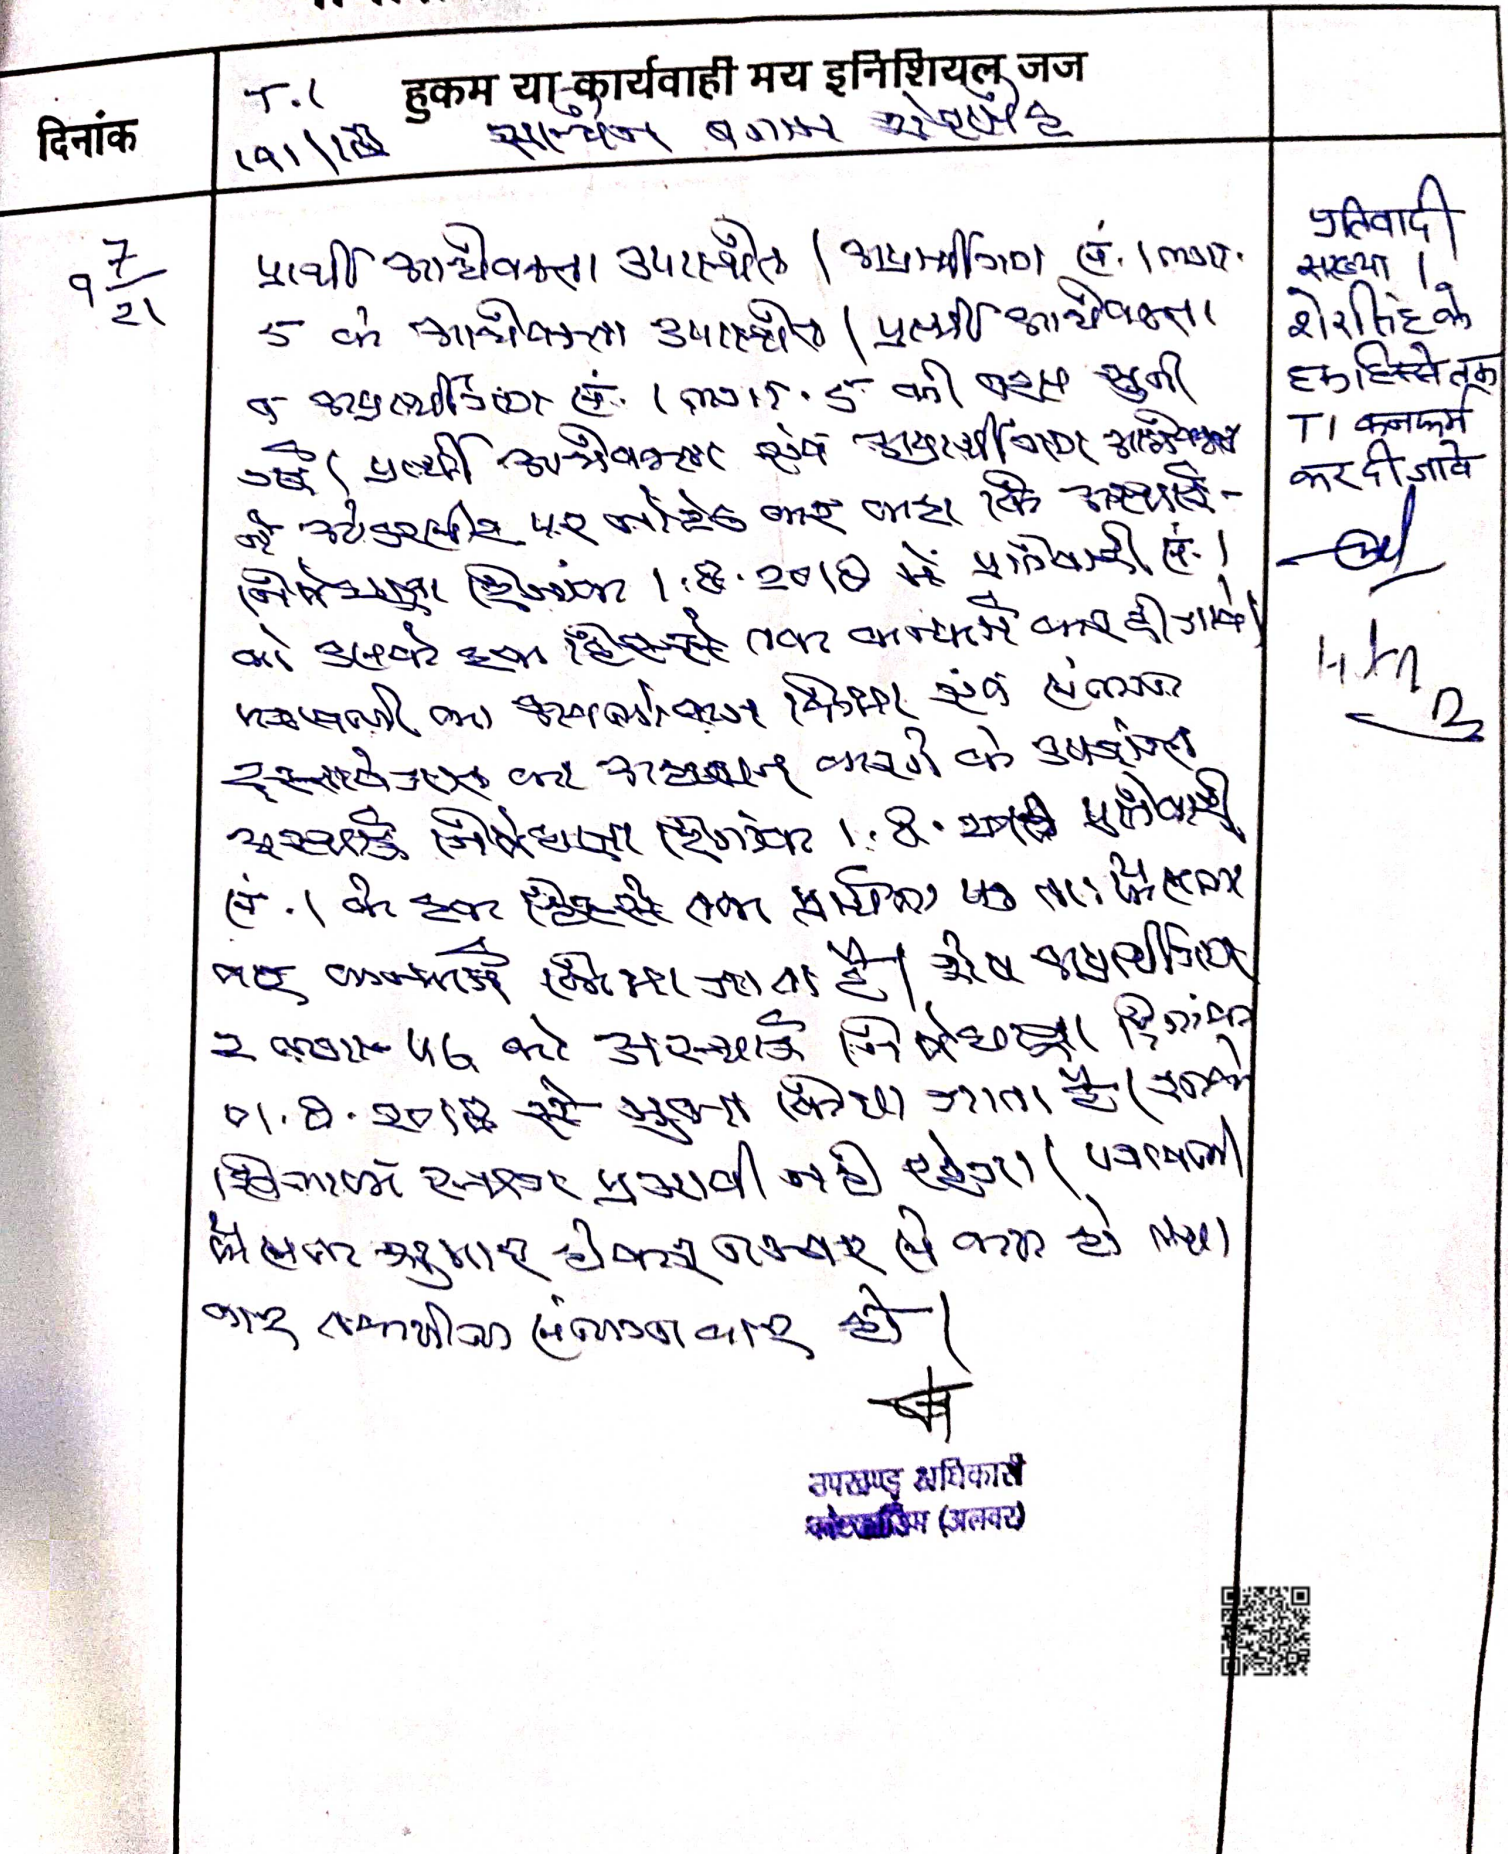 हुकम या कार्यवाही मय इनिशियल जज
दिनांक
T.I
191/18 बनाम शेरसिंह
9 7/21
प्रार्थी अधिवक्ता उपस्थित । अप्रार्थीगण सं. 1 लगा.
5 के अधिवक्ता उपस्थित । प्रार्थी अधिवक्ता
व अप्रार्थीगण सं. 1 लगा. 5 की बहस सुनी
गई । प्रार्थी अधिवक्ता एवं अप्रार्थीगण अधिवक्ता
ने पर कर कहा कि अस्थाई
निषेधाज्ञा दिनांक 1.8.2018 में प्रतिवादी सं. 1
को उसके हक हिस्से तक कन्फर्म कर दी जावे।
पत्रावली का अवलोकन किया एवं संलग्न
दस्तावेजात का अध्ययन करने के उपरान्त
अस्थाई निषेधाज्ञा दिनांक 1.8.2018 प्रतिवादी
सं. 1 के हक हिस्से तक प्रार्थना पत्र ता. फैसला
वाद कन्फर्म किया जाता है। शेष अप्रार्थीगण
2 लगा. 56 को अस्थाई निषेधाज्ञा दिनांक
01.8.2018 से मुक्त किया जाता है। इनके
खिलाफ स्थगन प्रभावी नहीं रहेगा। पत्रावली
फैसल शुमार होकर नम्बर से कम हो तथा
बाद तकमील संलग्न वाद हो।
उपखण्ड अधिकारी
(अलवर)
प्रतिवादी
संख्या 1
शेरसिंह के
हक हिस्से तक
TI कनफर्म
कर दी जावे